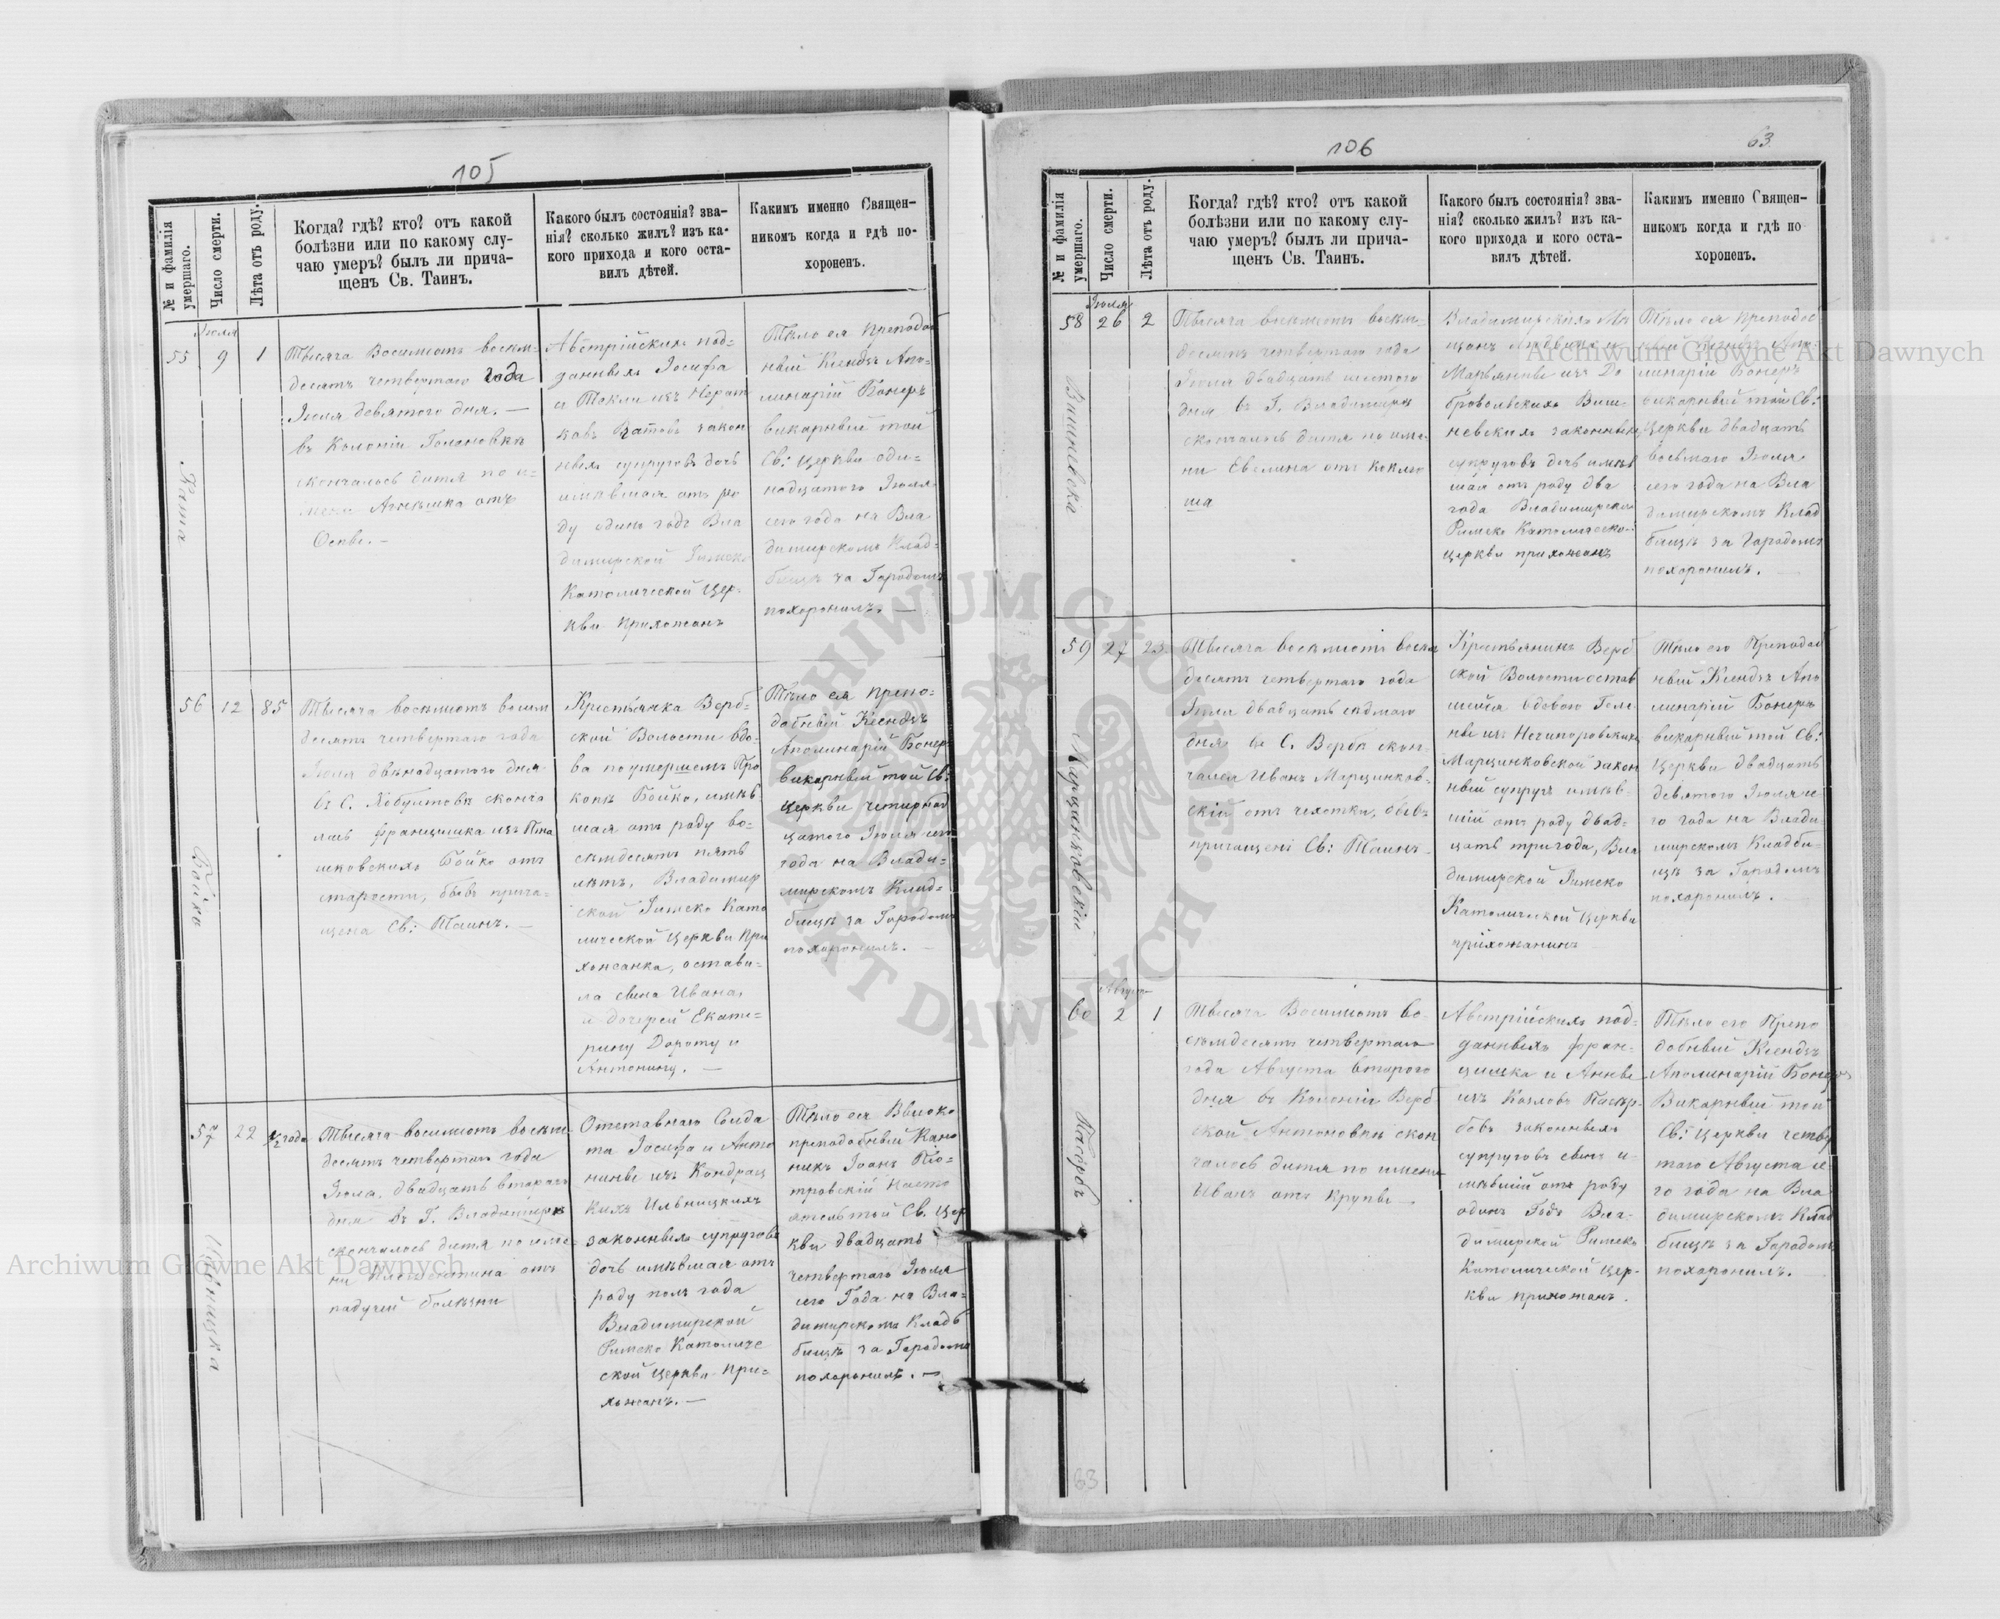 105
№ и фамилія умершаго.
Число смерти.
Лѣта отъ роду.
Когда? гдѣ? кто? отъ какой
болѣзни или по какому слу-
чаю умеръ? былъ ли прича-
щенъ Св. Таинъ.
Какого былъ состоянія? зва-
нія? сколько жилъ? изъ ка-
кого прихода и кого оста-
вилъ дѣтей.
Какимъ именно Священ-
никомъ когда и гдѣ по-
хороненъ.
55
Іюля
9
1
Тысяча Восемьсотъ восемь-
десятъ четвертаго года
Іюля девятаго дня. —
въ Колоніи
скончалось дитя по и-
мени Агнѣшка отъ
Оспы. —
Австрійскихъ под-
данныхъ Іосифа
и Теклі изъ
закон
ныхъ супруговъ дочь
имѣвшая отъ ро
ду одинъ годъ Вла
димирской Римско
Католической Цер-
кви Прихожанъ
Тѣло ея Преподо
бный Ксендзъ Апо-
линарій Бонеръ
викарный той
Св: Церкви оди-
надцатого Іюля
сего года на Вла
димирскомъ Клад-
бищѣ за Городомъ
похоронилъ. —
56
12
85
Бойко
Тысяча восемьсотъ восем
десятъ четвертаго года
Іюля двѣнадцатого дня
въ С. Хобултовѣ сконча
лась Францишка изъ
Бойко отъ
старости, бывъ прича-
щена Св: Таинъ. —
Крестьянка Верб-
ской Волости вдо-
ва по умершемъ Про
копѣ Бойко, имѣв-
шая отъ роду во-
семдесятъ пять
лѣтъ, Владимир
ской Римско Като
лической Церкви При
хожанка, остави-
ла сына Ивана,
и дочерей Екате-
рину Дороту и
Антонину. —
Тѣло ея Препо-
добный Ксендзъ
Аполинарій Бонеръ
викарный той Св:
Церкви четырнад
цатого Іюля сего
года на Влади-
мирскомъ Клад-
бищѣ за Городомъ
похоронилъ. —
57
22
1/2 года
Ильницка
Тысяча восемьсотъ восемь
десятъ четвертаго года
Іюля двадцать втораго
дня въ Г. Владимирѣ
скончалось дитя по име-
ни отъ
падучей болѣзни
Отставнаго Солда
та Іосифа и Анто
нины изъ Кондрац
кихъ Ильницкихъ
законныхъ супруговъ
дочь имѣвшая отъ
роду полъ года
Владимирской
Римско Католиче
ской Церкви При-
хожанъ. —
Тѣло ея Высоко
преподобный Кано
никъ Іоанъ Піо-
тровскій Насто
ятель той Св. Цер
кви двадцать
четвертаго Іюля
сего Года на Вла-
димирскомъ Кладъ
бищѣ за Городомъ
похоронилъ. —
106
63
№ и фамилія умершаго.
Число смерти.
Лѣта отъ роду.
Когда? гдѣ? кто? отъ какой
болѣзни или по какому слу-
чаю умеръ? былъ ли прича-
щенъ Св. Таинъ.
Какого былъ состоянія? зва-
нія? сколько жилъ? изъ ка-
кого прихода и кого оста-
вилъ дѣтей.
Какимъ именно Священ-
никомъ когда и гдѣ по
хороненъ.
58
Іюля
26
2
Вишневска
Тысяча восемьсотъ восемь-
десятъ четвертаго года
Іюля двадцать шестого
дня въ Г. Владимирѣ
скончалось дитя по име-
ни Евелина отъ коклю
ша
Владимирскихъ Мѣ
щанъ Людвика и
Марьянны изъ До
бровольскихъ Виш-
невскихъ законныхъ
супруговъ дочь имѣв
шая отъ роду два
года Владимирской
Римско Католической
Церкви прихожанъ
Тѣло ея Преподоб
ный Ксендзъ Апо-
линарій Бонеръ
викарный той Св:
Церкви двадцать
восьмаго Іюля
сего года на Вла
димирскомъ Клад
бищѣ за Городомъ
похоронилъ. —
59
27
23
Марцинковскій
Тысяча восемьсотъ восем
десятъ четвертаго года
Іюля двадцать седмаго
дня въ С. Вербѣ скон-
чался Иванъ Марцинков-
скій отъ чахотки, бывъ
причащенъ Св: Таинъ.
Крестьянинъ Верб
ской Волости остав
шейся вдовою Геле
ны изъ Нечипоровскихъ
Марцинковской закон
ный супругъ имѣв-
шій отъ роду двад-
цать три года, Вла
димирской Римско
Католической Церкви
прихожанинъ
Тѣло его Преподоб
ный Ксендзъ Апо
линарій Бонеръ
викарный той Св:
Церкви двадцать
девятого Іюля се
го года на Влади-
мирскомъ Кладби-
щѣ за Городомъ
похоронилъ.
60
Августа
2
1
Пасербъ
Тысяча Восемьсотъ во-
семдесятъ четвертаго
года Августа второго
дня въ Колоніи Верб
ской Антоновкѣ скон
чалось дитя по имени
Иванъ отъ крупы. —
Австрійскихъ под-
данныхъ Фран-
цишка и Анны
изъ Козловъ Пасер-
бовъ законныхъ
супруговъ сынъ и-
мѣвшій отъ роду
одинъ Годъ Вла-
димирской Римско
Католической Цер-
кви прихожанъ.
Тѣло его Препо
добный Ксендзъ
Аполинарій Бонеръ
Викарный той
Св: Церкви четвер
таго Августа се
го года на Вла
димирскомъ Клад
бищѣ за Городомъ
похоронилъ.
63
Archiwum Główne Akt Dawnych
Archiwum Główne Akt Dawnych
ARCHIWUM GŁÓWNE AKT DAWNYCH